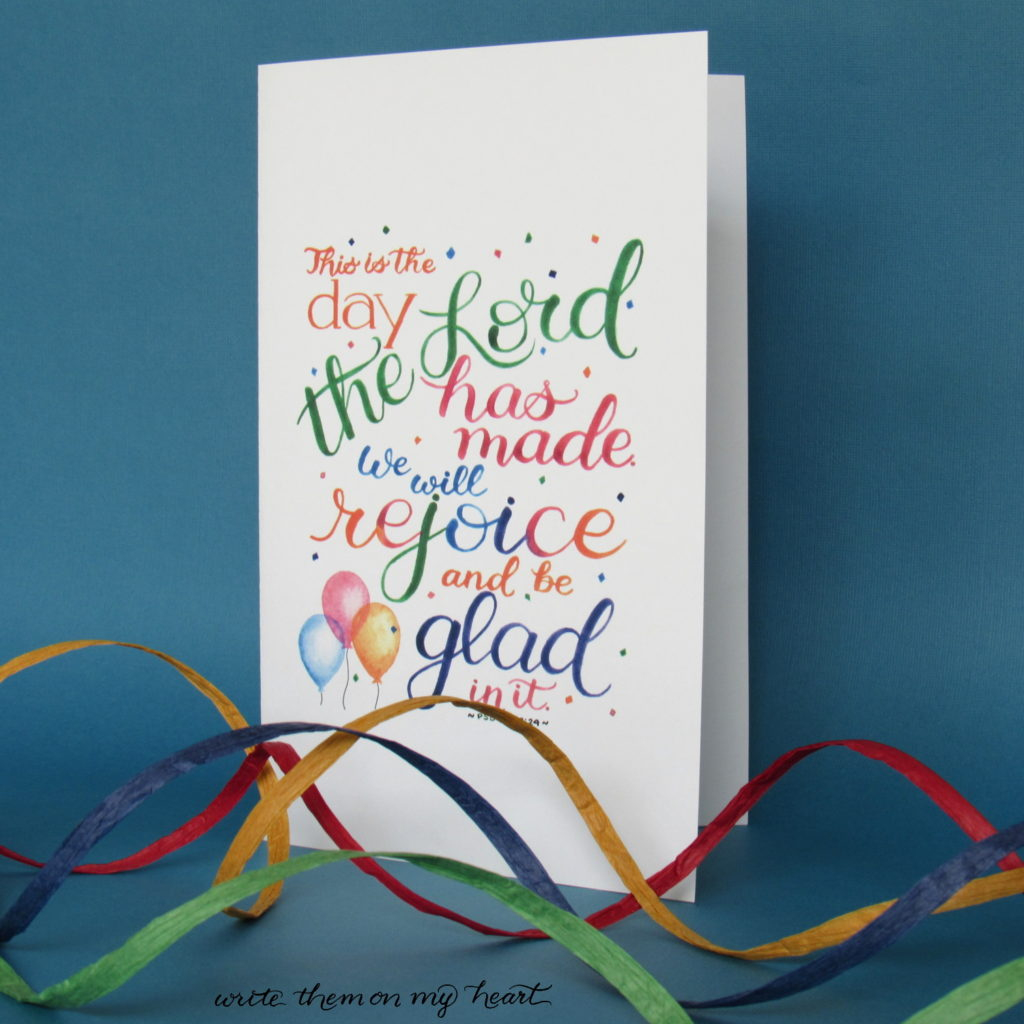 This is the
day
the Lord
has
made.
We
will
rejoice
and be
glad
in it.
write them on my heart